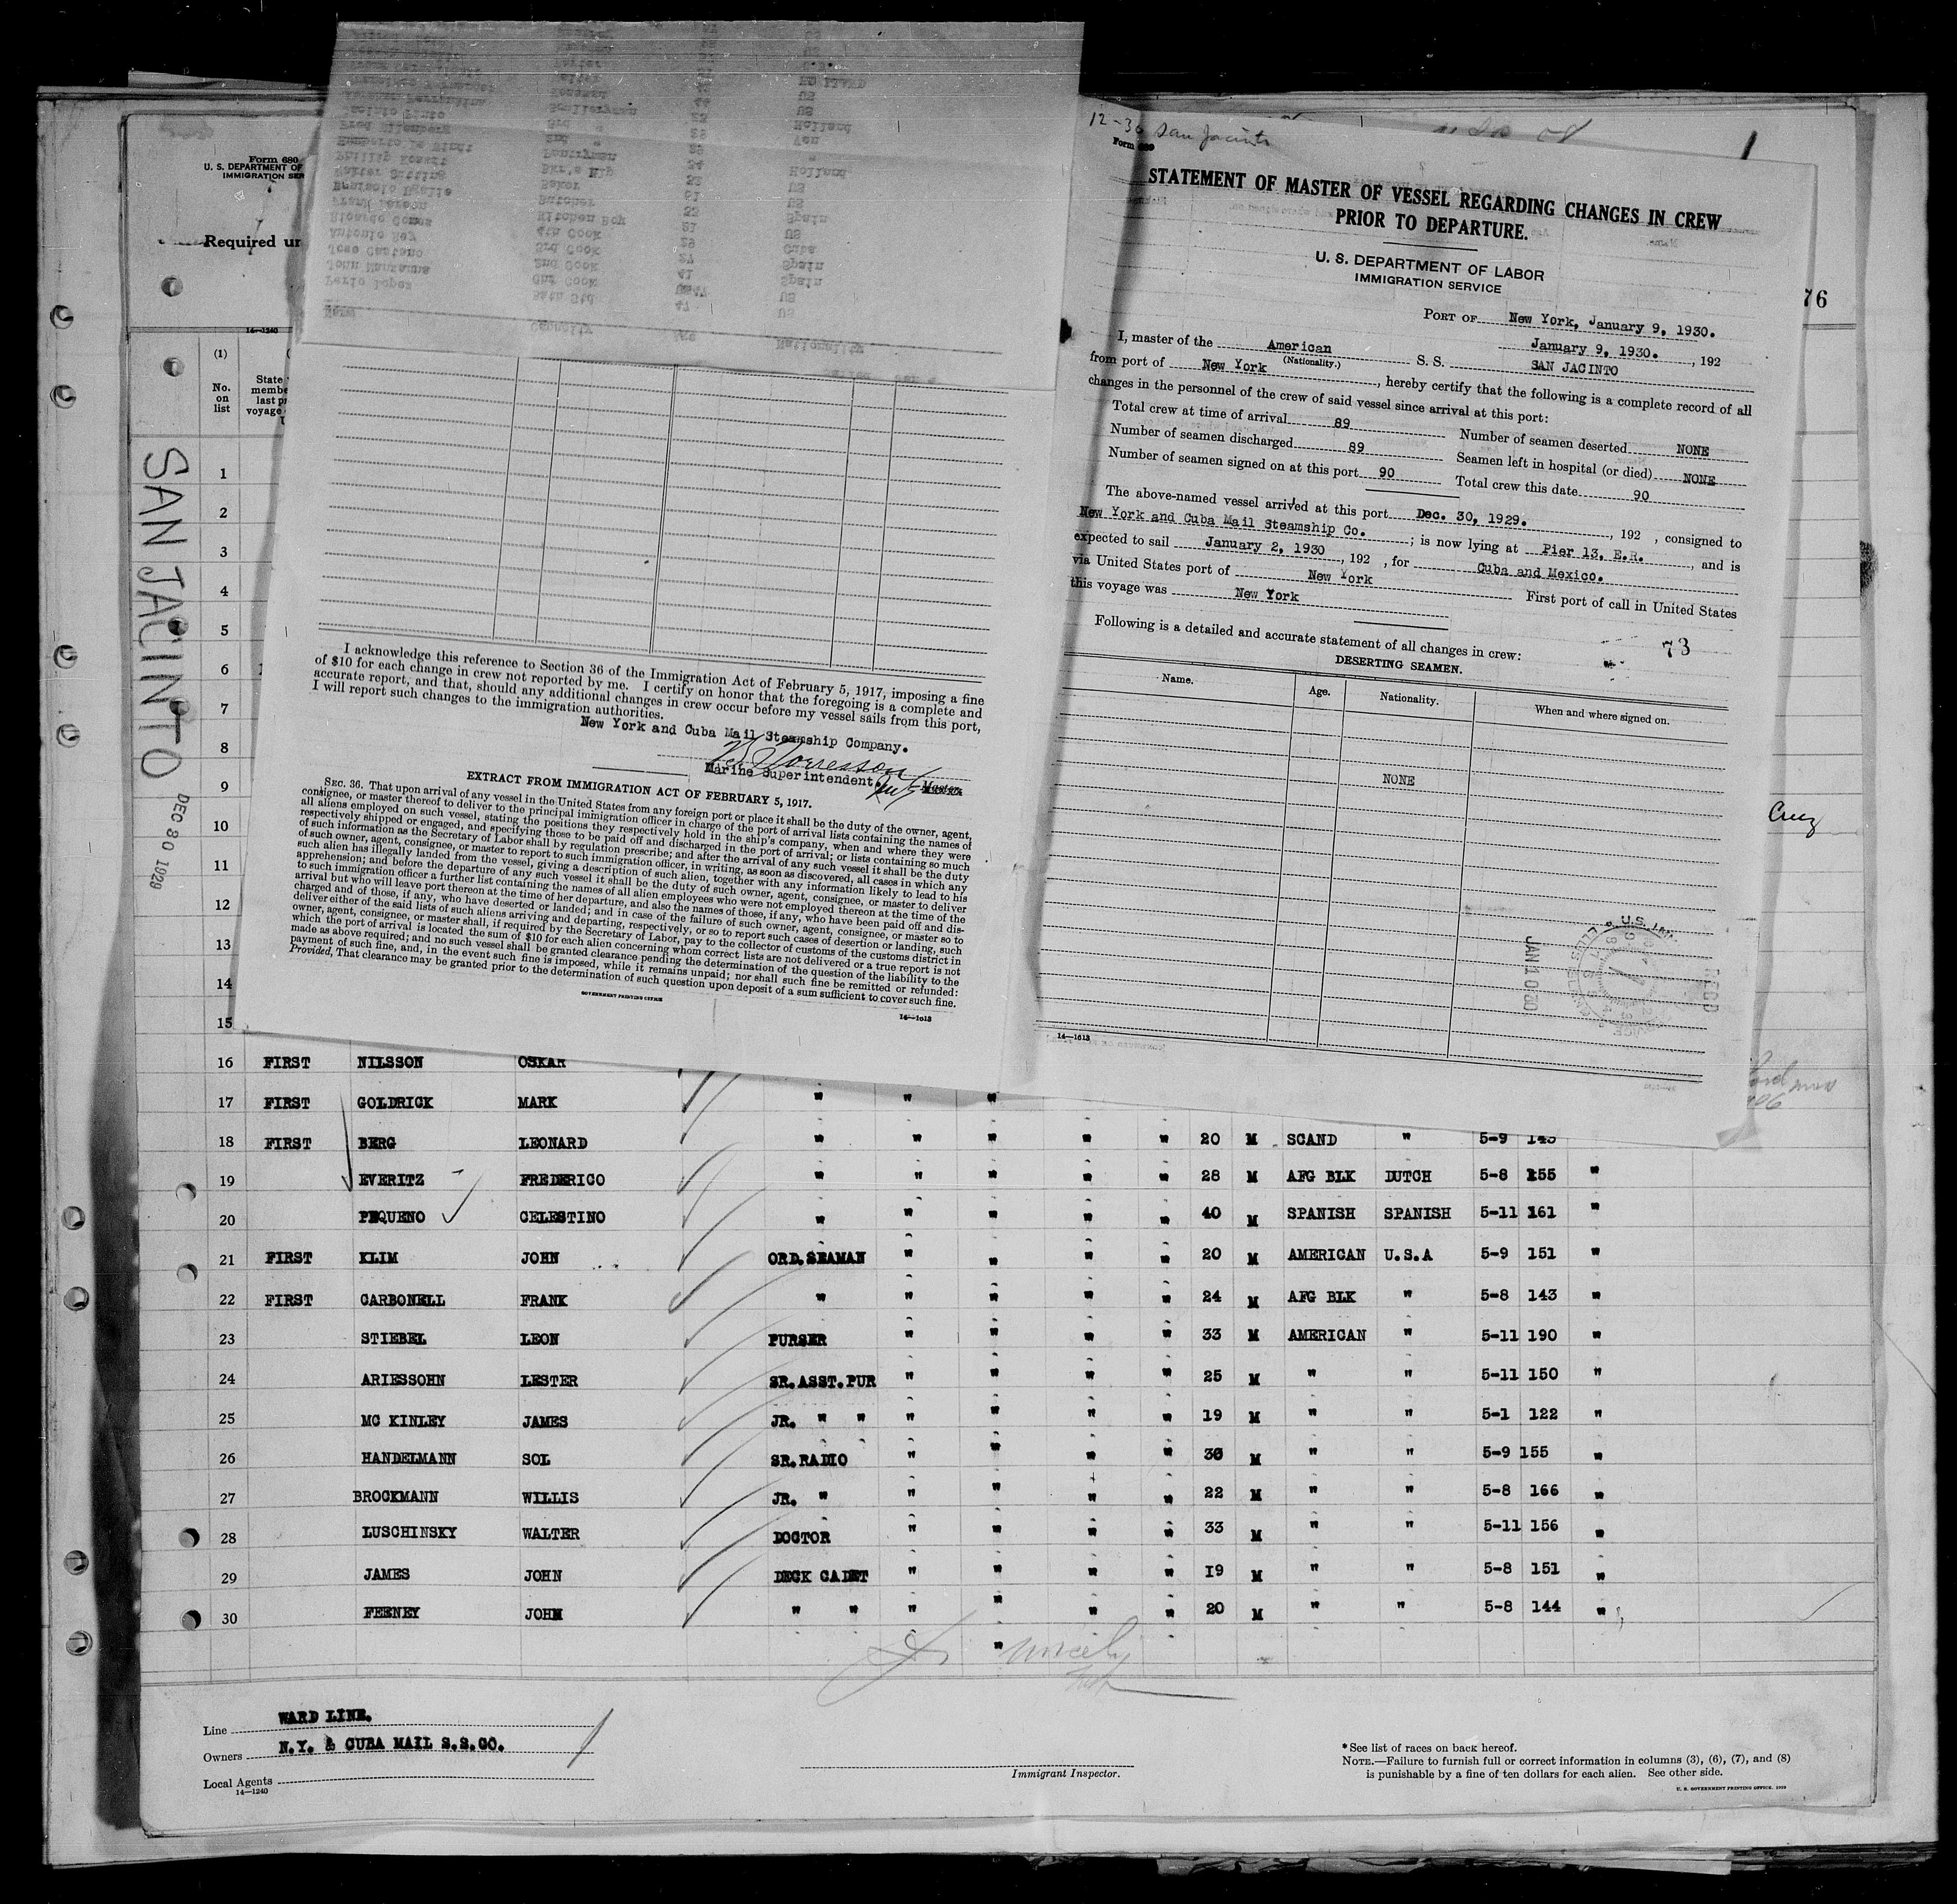 12-30 San Jacinto
STATEMENT OF MASTER OF VESSEL REGARDING CHANGES IN CREW
PRIOR TO DEPARTURE.
U. S. DEPARTMENT OF LABOR
IMMIGRATION SERVICE
PORT OF New York, January 9, 1930.
January 9, 1930. , 192
I, master of the American S. S. SAN JACINTO
(Nationality.)
from port of New York , hereby certify that the following is a complete record of all
changes in the personnel of the crew of said vessel since arrival at this port:
Total crew at time of arrival 89 Number of seamen deserted NONE
Number of seamen discharged 89 Seamen left in hospital (or died) NONE
Number of seamen signed on at this port 90 Total crew this date 90
The above-named vessel arrived at this port Dec. 30, 1929. , 192 , consigned to
New York and Cuba Mail Steamship Co. ; is now lying at Pier 13, E.R. , and is
expected to sail January 2, 1930 , 192 , for Cuba and Mexico.
via United States port of New York First port of call in United States
this voyage was New York
Following is a detailed and accurate statement of all changes in crew: 73
DESERTING SEAMEN.
Name. Age. Nationality. When and where signed on.
NONE
JAN 10 30
14—1613
Form 680
U. S. DEPARTMENT OF
IMMIGRATION SER
Required un
76
14—1240
(1)
No. on list
State
membe
last pr
voyage
SAN JACINTO
DEC 30 1929
Cruz
Name Capacity Age Nationality
Bath Std 47 US
Perlo Lopez Chf Cook 41 Spain
John Manzanna 2nd Cook 27 Spain
Jose Castano 3rd Cook 29 Cuba
Antonio Rey 4th Cook 21 US
Ricardo Comas Kitchen Boy 33 Spain
Butcher US
Baker US
Walter Sitting Bkr's Hlp Holland
Pantryman
I acknowledge this reference to Section 36 of the Immigration Act of February 5, 1917, imposing a fine
of $10 for each change in crew not reported by me. I certify on honor that the foregoing is a complete and
accurate report, and that, should any additional changes in crew occur before my vessel sails from this port,
I will report such changes to the immigration authorities.
New York and Cuba Mail Steamship Company.
Marine Superintendent. Master.
EXTRACT FROM IMMIGRATION ACT OF FEBRUARY 5, 1917.
SEC. 36. That upon arrival of any vessel in the United States from any foreign port or place it shall be the duty of the owner, agent,
consignee, or master thereof to deliver to the principal immigration officer in charge of the port of arrival lists containing the names of
all aliens employed on such vessel, stating the positions they respectively hold in the ship's company, when and where they were
respectively shipped or engaged, and specifying those to be paid off and discharged in the port of arrival; or lists containing so much
of such information as the Secretary of Labor shall by regulation prescribe; and after the arrival of any such vessel it shall be the duty
of such owner, agent, consignee, or master to report to such immigration officer, in writing, as soon as discovered, all cases in which any
such alien has illegally landed from the vessel, giving a description of such alien, together with any information likely to lead to his
apprehension; and before the departure of any such vessel it shall be the duty of such owner, agent, consignee, or master to deliver
to such immigration officer a further list containing the names of all alien employees who were not employed thereon at the time of the
arrival but who will leave port thereon at the time of her departure, and also the names of those, if any, who have been paid off and dis-
charged and of those, if any, who have deserted or landed; and in case of the failure of such owner, agent, consignee, or master so to
deliver either of the said lists of such aliens arriving and departing, respectively, or so to report such cases of desertion or landing, such
owner, agent, consignee, or master shall, if required by the Secretary of Labor, pay to the collector of customs of the customs district in
which the port of arrival is located the sum of $10 for each alien concerning whom correct lists are not delivered or a true report is not
made as above required; and no such vessel shall be granted clearance pending the determination of the question of the liability to the
payment of such fine, and, in the event such fine is imposed, while it remains unpaid; nor shall such fine be remitted or refunded:
Provided, That clearance may be granted prior to the determination of such question upon deposit of a sum sufficient to cover such fine.
GOVERNMENT PRINTING OFFICE
14—1613
1
2
3
4
5
6
7
8
9
10
11
12
13
14
15
16 FIRST NILSSON OSKAR
17 FIRST GOLDRICK MARK " " "
18 FIRST BERG LEONARD " " " " " 20 M SCAND " 5-9 145
19 EVERITZ FREDERICO " " " " " 28 M AFG BLK DUTCH 5-8 155 "
20 PEQUENO CELESTINO " " " " " 40 M SPANISH SPANISH 5-11 161 "
21 FIRST KLIM JOHN ORD.SEAMAN " " " " 20 M AMERICAN U.S.A 5-9 151 "
22 FIRST CARBONELL FRANK " " " " " 24 M AFG BLK " 5-8 143 "
23 STIEBEL LEON PURSER " " " " 33 M AMERICAN " 5-11 190 "
24 ARIESSOHN LESTER SR.ASST.PUR " " " " 25 M " " 5-11 150 "
25 MC KINLEY JAMES JR. " " " " " " 19 M " " 5-1 122 "
26 HANDELMANN SOL SR.RADIO " " " " 30 M " " 5-9 155 "
27 BROCKMANN WILLIS JR. " " " " " 22 M " " 5-8 166 "
28 LUSCHINSKY WALTER DOCTOR " " " " 33 M " " 5-11 156 "
29 JAMES JOHN DECK CADET " " " " 19 M " " 5-8 151 "
30 FEENEY JOHN " " " " " " 20 M " " 5-8 144 "
Line WARD LINE.
Owners N.Y. & CUBA MAIL S.S.CO.
Local Agents
14—1240
Immigrant Inspector.
* See list of races on back hereof.
NOTE.—Failure to furnish full or correct information in columns (3), (6), (7), and (8)
is punishable by a fine of ten dollars for each alien. See other side.
U. S. GOVERNMENT PRINTING OFFICE. 1929